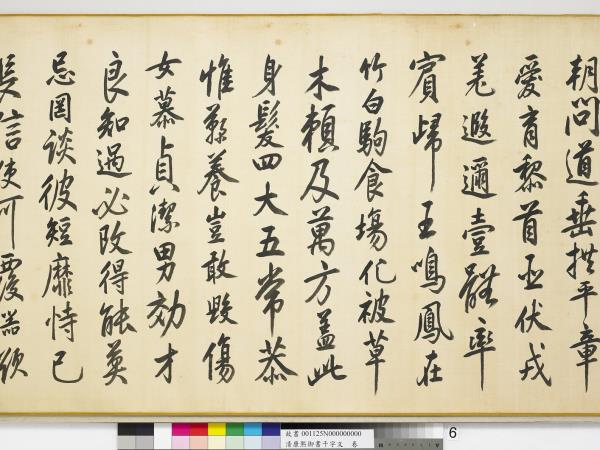 朝問道垂拱平章
愛育黎首臣伏戎
羌遐邇壹體率
賓歸王鳴鳳在
竹白駒食場化被草
木賴及萬方蓋此
身髮四大五常恭
惟鞠養豈敢毀傷
女慕貞潔男効才
良知過必改得能莫
忌罔談彼短靡恃己
長信使可覆器欲
故書 001125N000000000
清康熙御書千字文 卷
6